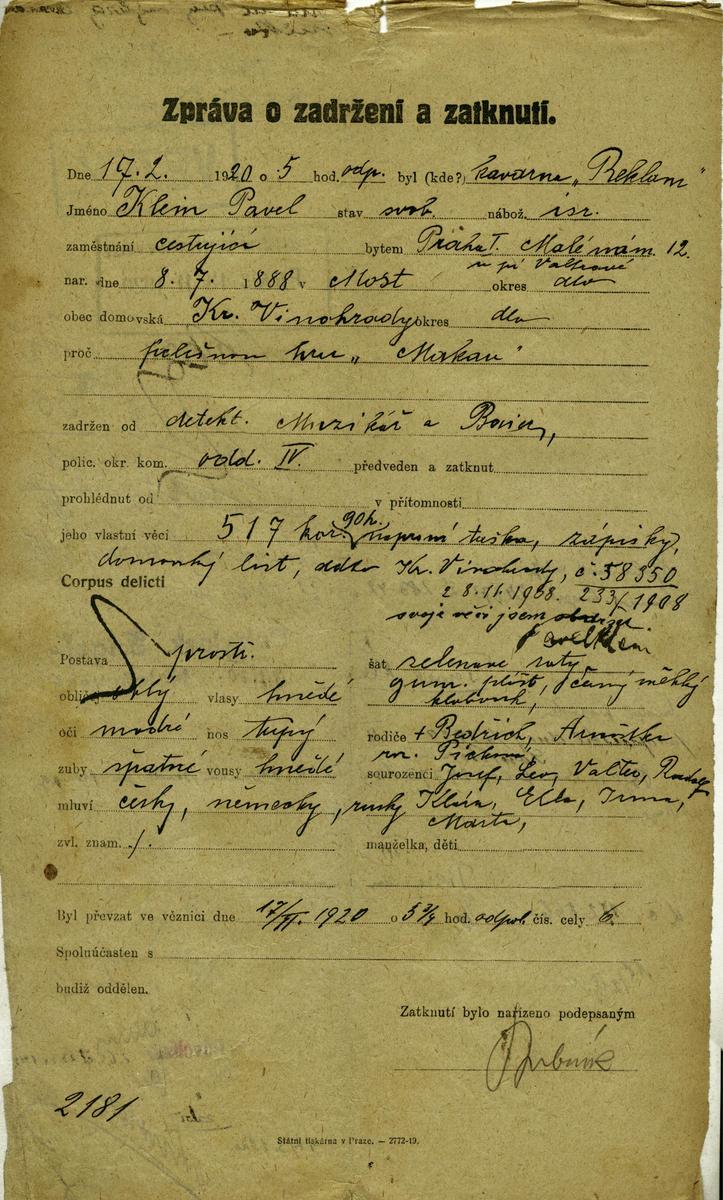 Zpráva o zadržení a zatknutí.
Dne 17. 2. 1920 o 5 hod. odp. byl (kde?) kavárna „Reklam"
Jméno Klein Pavel stav svob. nábož. isr.
zaměstnání cestující bytem Praha I. Malé nám. 12.
u pí Valterové
nar. dne 8. 7. 1888 v Most okres dto
obec domovská Kr. Vinohrady okres dto
proč falešnou hru „Makau"
zadržen od detekt. Muzikář a Baier,
polic. okr. kom. odd. IV. předveden a zatknut
prohlédnut od v přítomnosti
jeho vlastní věci 517 kor. 90 h. náprsní taška, zápisky,
domovský list, ddto Kr. Vinohrady, č. 58350
Corpus delicti 28.11.1908. 233/1908
svoje věci jsem obdržel
Pavel Klein
Postava prostř. šat zelenavé šaty
obličej oblý vlasy hnědé gum. plášť, černý měkký
klobouk,
oči modré nos tupý rodiče + Bedřich, Arnoštka
roz. Picková
zuby špatné vousy hnědé sourozenci Josef, Leo, Valter, Rudolf
mluví česky, německy, rusky Klára, Ella, Irma,
Marta,
zvl. znam. ./. manželka, děti
Byl převzat ve věznici dne 17/II. 1920 o 5 3/4 hod. odpol. čís. cely 6.
Spoluúčasten s
budiž oddělen.
Zatknutí bylo nařízeno podepsaným
2181
Státní tiskárna v Praze. — 2772-19.